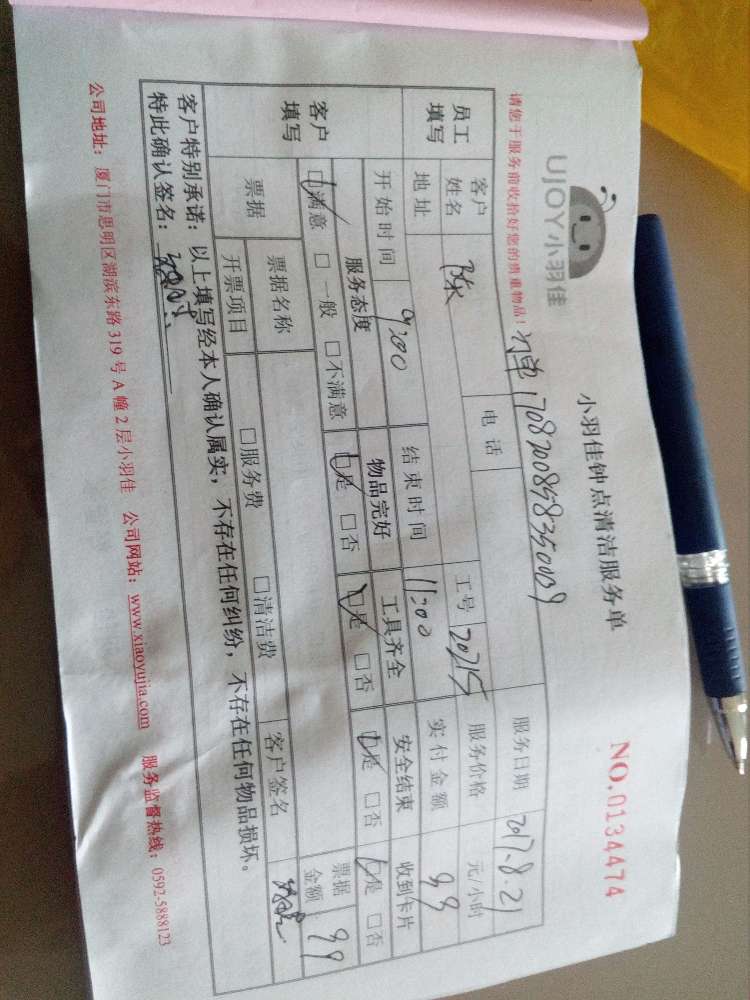 UJOY小羽佳
小羽佳钟点清洁服务单
NO.0134474
请您于服务前收拾好您的贵重物品！
订单
服务日期 2017.8.21
员工填写
客户姓名
电话
工号 20715
服务价格 元/小时
地址
实付金额 99
客户填写
开始时间 9:00 结束时间 11:00
服务态度 物品完好 工具齐全 安全结束 收到卡片
☑满意 □一般 □不满意 ☑是 □否 ☑是 □否 ☑是 □否 ☑是 □否
票据
票据名称
票据金额 99
开票项目 □服务费 □清洁费
客户签名
客户特别承诺：以上填写经本人确认属实，不存在任何纠纷，不存在任何物品损坏。
特此确认签名：
公司地址：厦门市思明区湖滨东路319号A幢2层小羽佳 公司网站：www.xiaoyujia.com 服务监督热线：0592-5888123